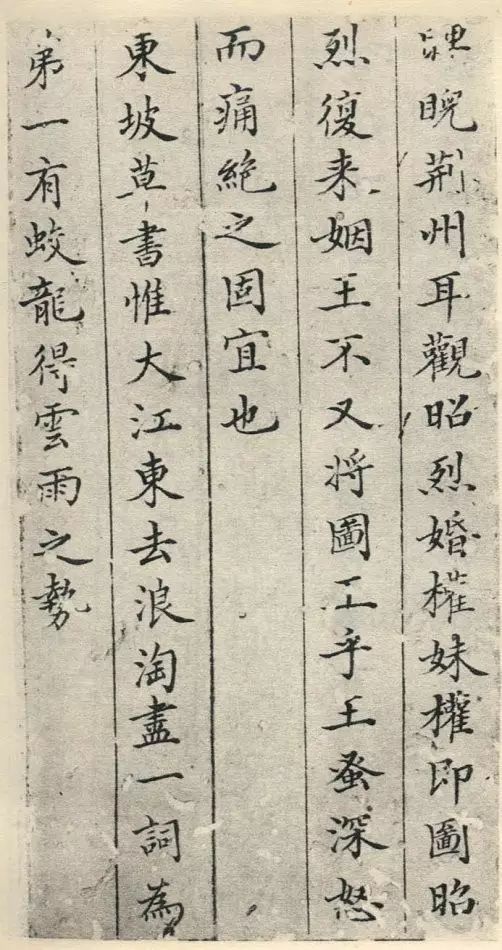 睨荊州耳觀昭烈婚權妹權即圖昭
烈復来姻王不又将圖王乎王蚤深怒
而痛絶之固宜也
東坡草書惟大江東去浪淘盡一詞為
弟一有蛟龍得雲雨之勢